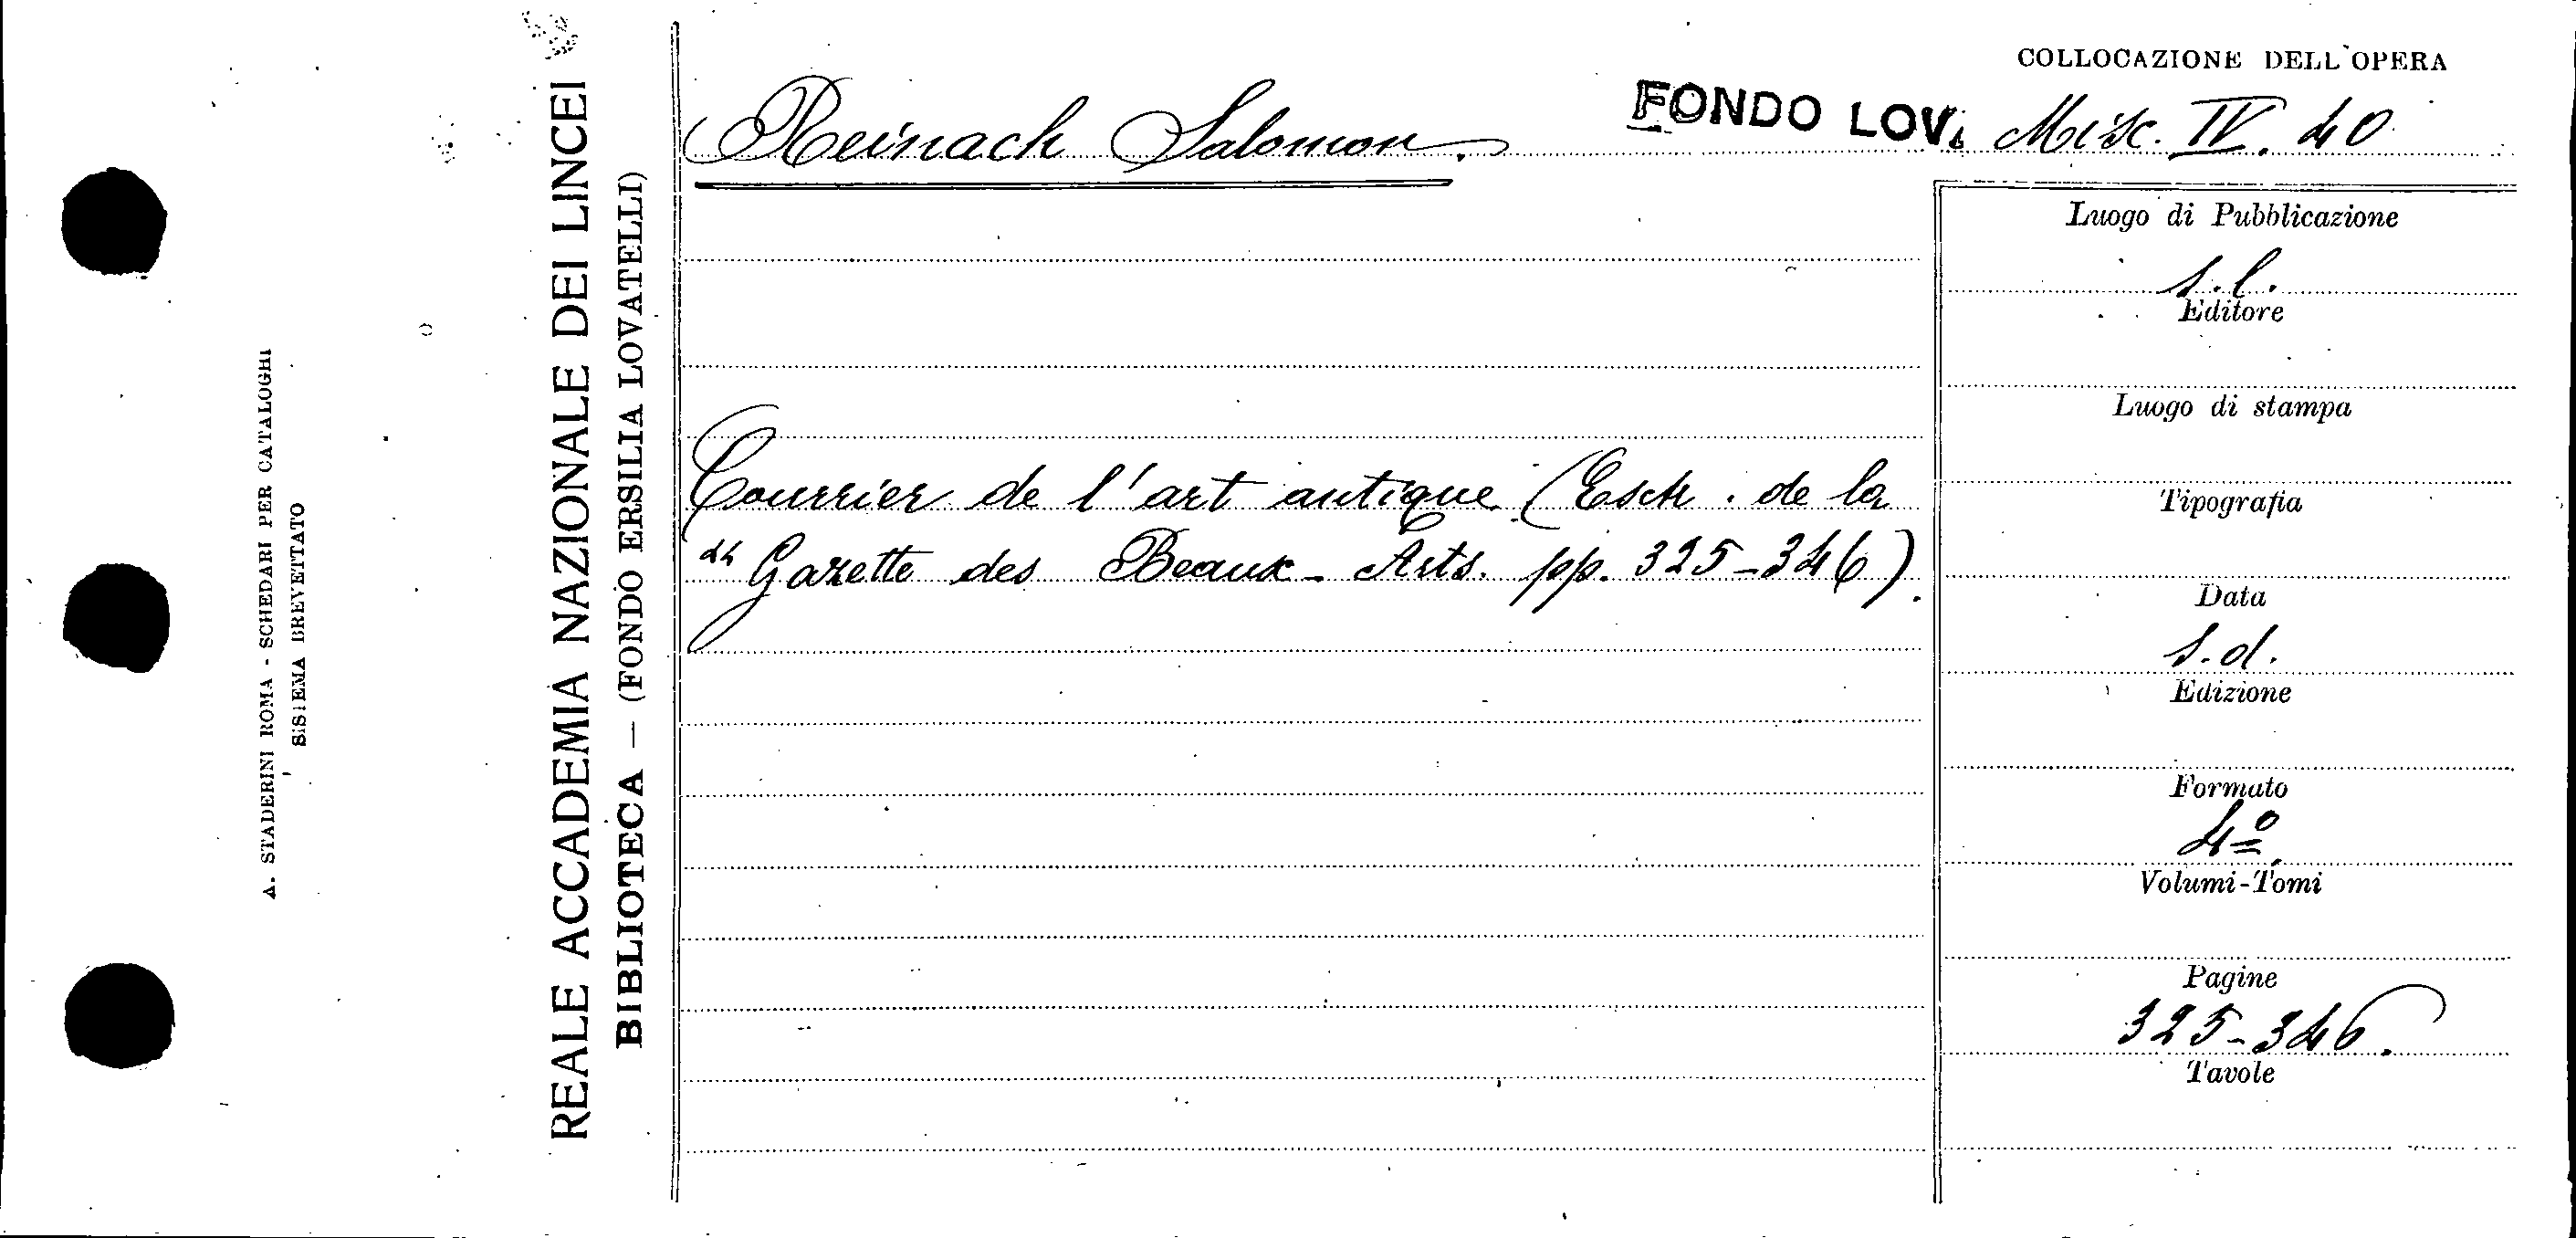 A. STADERINI ROMA - SCHEDARI PER CATALOGHI
SISTEMA BREVETTATO
REALE ACCADEMIA NAZIONALE DEI LINCEI
BIBLIOTECA — (FONDO ERSILIA LOVATELLI)
COLLOCAZIONE DELL'OPERA
Reinach Salomon.
FONDO LOV. Misc. IV. 40
Courrier de l'art antique (Estr. de la
"Gazette des Beaux-Arts. pp. 325-346).
Luogo di Pubblicazione
s.l.
Editore
Luogo di stampa
Tipografia
Data
s.d.
Edizione
Formato
4º
Volumi-Tomi
Pagine
325-346.
Tavole